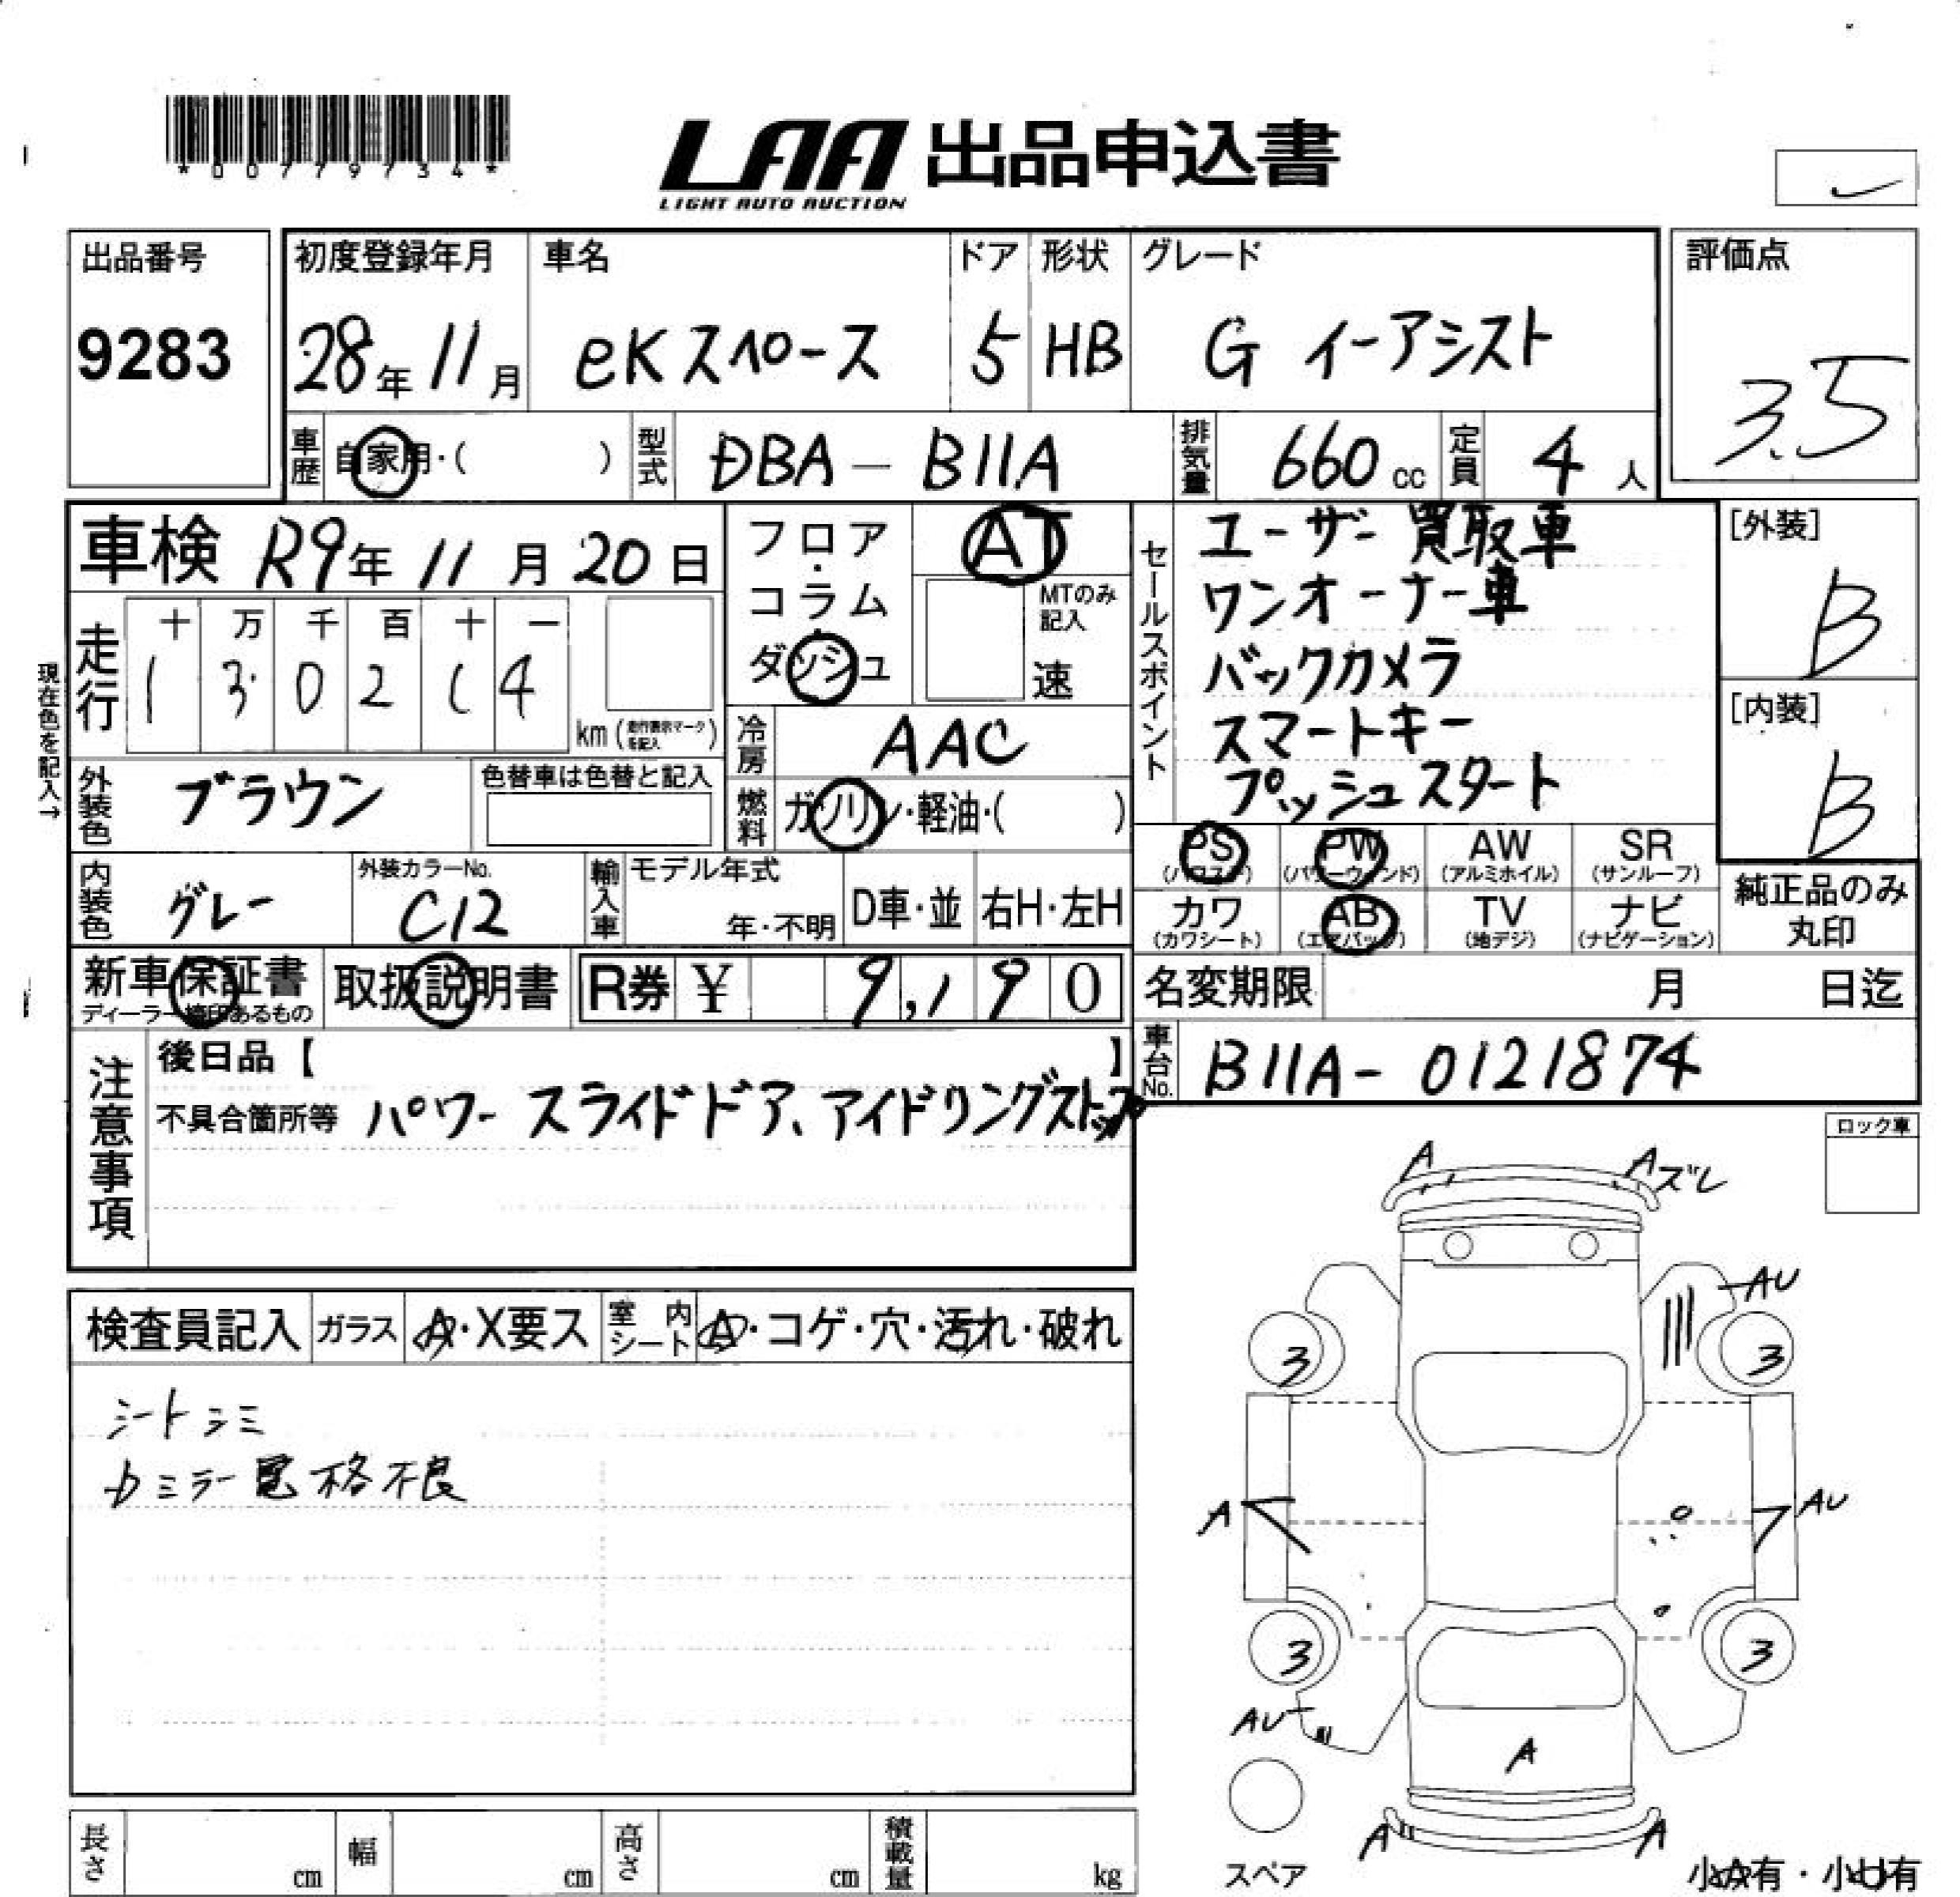 *00779734*
LAA 出品申込書
LIGHT AUTO AUCTION
出品番号
9283
初度登録年月
28年11月
車名
eKスペース
ドア
5
形状
HB
グレード
G イーアシスト
評価点
3.5
車歴 自家用・( )
型式 DBA-B11A
排気量 660 cc
定員 4人
車検 R9年11月20日
フロア・コラム・ダッシュ
AT
MTのみ記入
速
セールスポイント
ユーザー買取車
ワンオーナー車
バックカメラ
スマートキー
プッシュスタート
[外装]
B
[内装]
B
現在色を記入→
走行
十 万 千 百 十 一
1 3 0 2 1 4
km (走行表示マークを記入)
冷房 AAC
外装色 ブラウン
色替車は色替と記入
燃料 ガソリン・軽油・( )
PS (パワステ)
PW (パワーウィンド)
AW (アルミホイル)
SR (サンルーフ)
カワ (カワシート)
AB (エアバック)
TV (地デジ)
ナビ (ナビゲーション)
純正品のみ丸印
内装色 グレー
外装カラーNo.
C12
輸入車
モデル年式
年・不明
D車・並
右H・左H
新車保証書
ディーラー捺印あるもの
取扱説明書
R券 ¥ 9,190
名変期限 月 日迄
車台No. B11A-0121874
注意事項
後日品【 】
不具合箇所等 パワースライドドア、アイドリングストップ
ロック車
A
Aズレ
AU
3
3
A
AU
3
3
AU
A
A
A
スペア
小A有・小U有
検査員記入
ガラス A・X要ス
室内シート A・コゲ・穴・汚れ・破れ
シートシミ
ミラー電格不良
長さ cm
幅 cm
高さ cm
積載量 kg